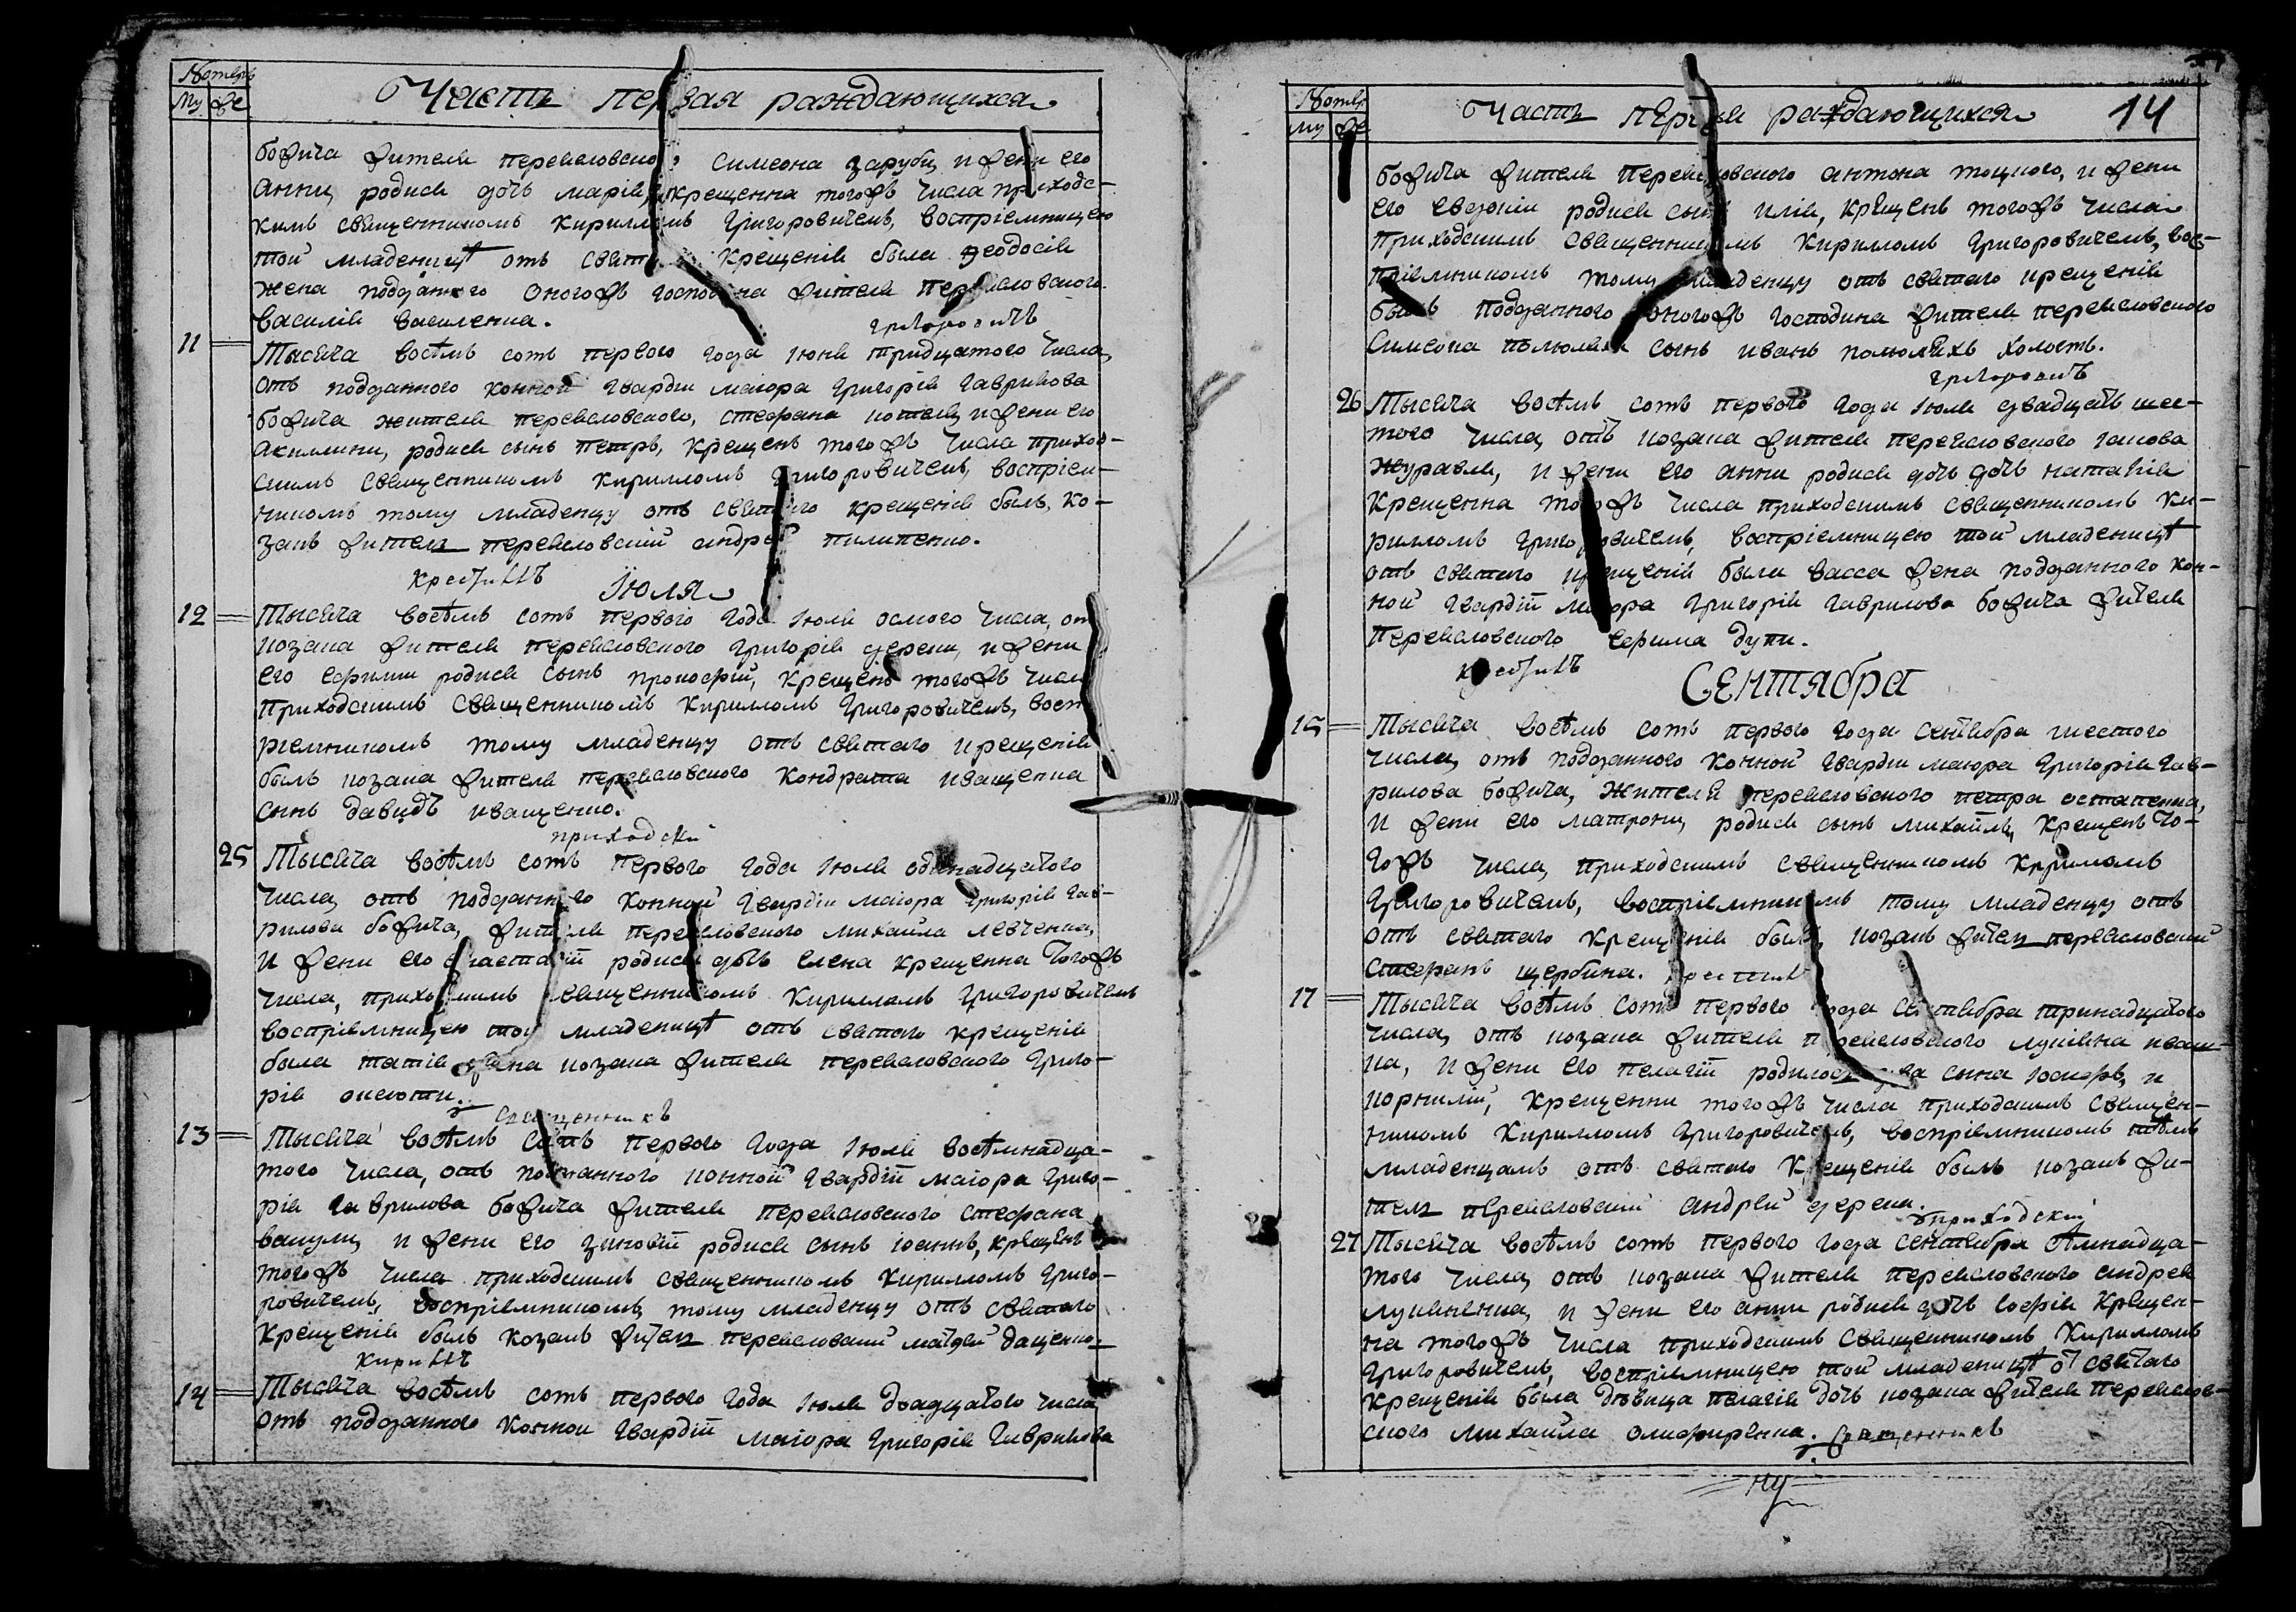 Номеръ
Му Же
Часть первая раждающихся
божича жителя переясловского Симеона зарубы, и жены его
анны, родися дочь марія, крещенна тогожъ числа приходс-
кимъ священникомъ Кирилломъ Григоровичемъ, воспріемницею
той младеницѣ отъ святаго Крещенія была Феодосія
жена подданного оногожъ господина жителя переясловского
василія василенка.
григоровичъ
11 Тысяча восѣмъ сотъ первого года іюня тридцатого числа,
отъ подданного конной гвардіи маіора Григорія Гаврилова
божича жителя переясловского, стефана котеля, и жены его
акилини, родися сынъ петръ, крещенъ тогожъ числа приход-
скимъ священникомъ кирилломъ григоровичемъ, воспріем-
никомъ тому младенцу отъ святаго крещенія былъ, ко-
закъ житель переясловскій андрей пилипенко.
крестилъ
Іюля
12 Тысяча восѣмъ сотъ первого года іюля осмого числа, отъ
козака жителя переясловского Григорія дереки, и жены
его ефиміи родися сынъ прокофій, крещенъ тогожъ числа
приходскимъ священникомъ Кирилломъ Григоровичемъ, восп
ріемникомъ тому младенцу отъ святаго крещенія
былъ козака жителя переясловского Кондрата иващенка
сынъ давидъ иващенко.
приходскій
25 Тысяча восѣмъ сотъ первого года іюля одинадцатого
числа, отъ подданного конной гвардіи маіора григорія Гав-
рилова божича, жителя переясловского михайла левченка,
и жены его анастасіи родися дочь елена крещенна тогожъ
числа, приходскимъ священникомъ Кирилломъ Григоровичемъ
воспріемницею той младеницѣ отъ святаго крещенія
была жена козака жителя переясловского Григо-
рія
священникъ
13 Тысяча восѣмъ сотъ первого года іюля восѣмнадца-
того числа, отъ подданного конной гвардіи маіора Григо-
рія гаврилова божича жителя переясловского стефана
вакулы, и жены его зиновіи родися сынъ іоаннъ, крещенъ
тогожъ числа приходскимъ священникомъ Кирилломъ Григо-
ровичемъ, воспріемникомъ тому младенцу отъ святаго
крещенія былъ козакъ житель переясловскій матфей даценко.
кириллъ
14 Тысяча восѣмъ сотъ первого года іюля двадцатого числа
отъ подданного конной гвардіи маіора григорія Гаврилова
Номеръ
Му Же
Часть первая раждающихся 14
божича жителя переясловского антона тоцкого, и жены
его евдокіи родися сынъ илія, крещенъ тогожъ числа
приходскимъ священникомъ Кирилломъ Григоровичемъ, вос-
пріемникомъ тому младенцу отъ святаго крещенія
былъ подданного оногожъ господина жителя переясловского
Симеона сынъ иванъ холостъ.
григоровичъ
26 Тысяча восѣмъ сотъ первого года іюля двадцать шес-
того числа, отъ козака жителя переясловского іакова
журавля, и жены его анны родися дочь дочь наталія
крещенна тогожъ числа приходскимъ священникомъ Ки-
рилломъ григоровичемъ, воспріемницею той младеницѣ
отъ святаго крещенія была васса жена подданного кон-
ной гвардіи маіора Григорія гаврилова божича жителя
переясловского ефима дупи.
крестилъ
СЕНТЯбРа
15 Тысяча восѣмъ сотъ первого года сентября шестого
числа, отъ подданного конной гвардіи маіора Григорія Гав-
рилова божича, жителя переясловского петра остапенка,
и жены его матроны, родися сынъ михаилъ, крещенъ то-
гожъ числа, приходскимъ священникомъ Кирилломъ
Григоровичемъ, воспріемникомъ тому младенцу отъ
отъ святаго крещенія былъ, козакъ житель переясловскій
стефанъ щербина. крестилъ
17 Тысяча восѣмъ сотъ первого года сентября тринадцатого
числа, отъ козака жителя переясловского лукіяна иваш-
ка, и жены его пелагіи родилось два сына іосифъ, и
корнилій, крещенни тогожъ числа приходскимъ священ-
никомъ Кирилломъ Григоровичемъ, воспріемникомъ тѣмъ
младенцамъ отъ святаго крещенія былъ козакъ жи-
тель переясловскій андрей дерека.
приходскій
28 27 Тысяча восѣмъ сотъ первого года сентября
того числа, отъ козака жителя переясловского андрея
лукяненка, и жены его анны родися дочь софія крещен-
на тогожъ числа приходскимъ священникомъ Кирилломъ
Григоровичемъ, воспріемницею той младеницѣ от святаго
крещенія была дѣвица пелагія дочь козака жителя переяслов-
ского михайла олифиренка. священникъ